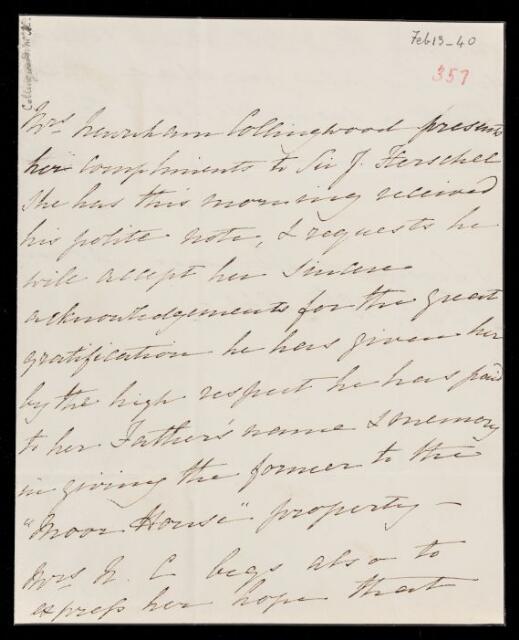 Feb 13 - 40
357
Mrs. Newnham Collingwood presents
her compliments to Sir J. Herschel
She has this morning received
his polite note, & requests he
will accept her sincere
acknowledgements for the great
gratification he has given her
by the high respect he has paid
to her Father's name & memory
in giving the former to the
"Moor House" property —
Mrs N. C begs also to
express her hope that